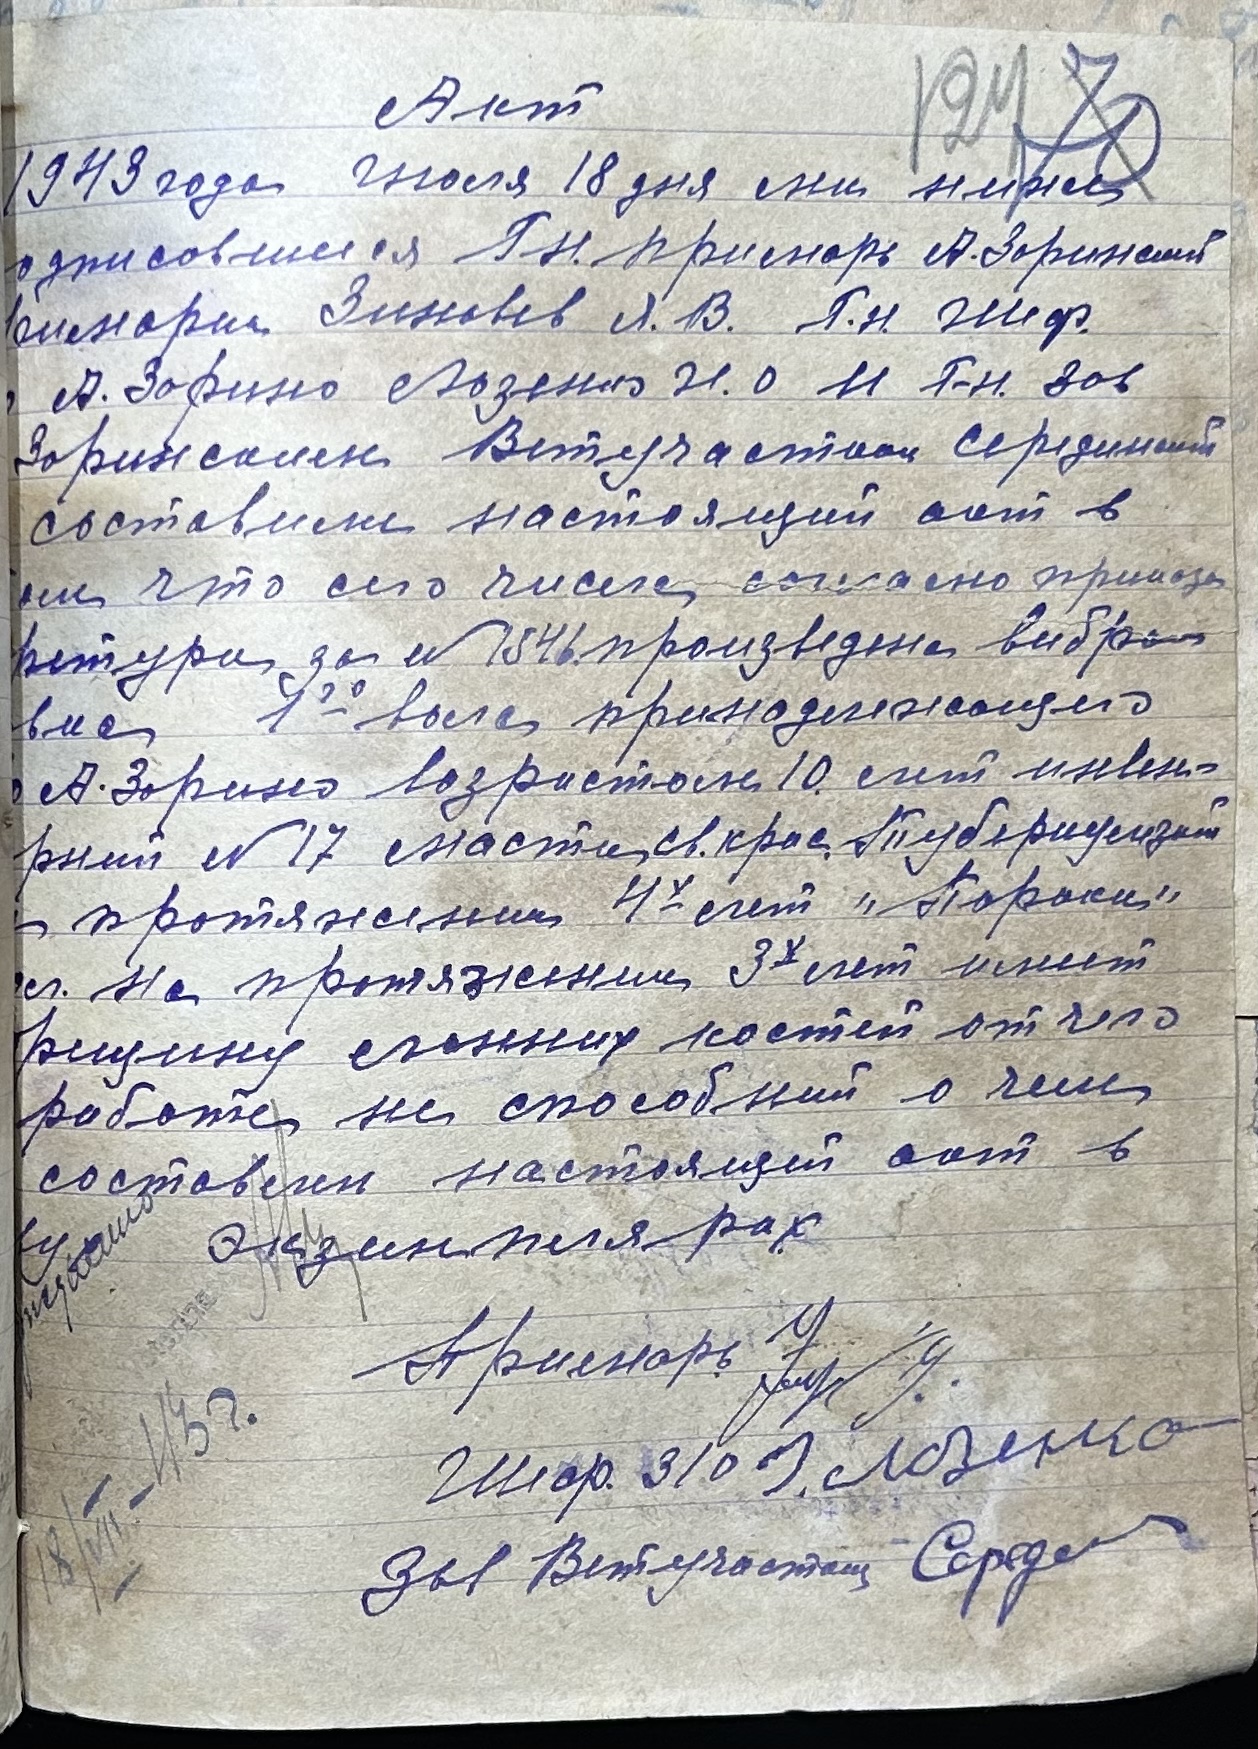 Акт
1943 года Июля 18 дня ми ниже
одписовшиеся Г-н. примарь А.Зоринский
римарии Зиновев Я.В. Г.н. Шеф.
А.Зорино Лозенко И.О и Г-н. зав
Зоринским Ветучастком Серединский
составили настоящий акт в
ом что сего числа согласно приказа
ретури за № 1546. произведена вибра
вка 1го вола принадлежащего
А.Зорино возрастом 10 лет инвен-
рний № 17 масти св.крас. Туберкулезний
протяжении 4х лет "Пароки"
на протяжении 3х лет имеет
рещину лонних костей от чего
работе не способний о чем
составлен настоящий акт в
Экземплярах
Примарь
Шеф. З/О Лозенко
Зав Ветучастком Серед
18/VII-43 г.